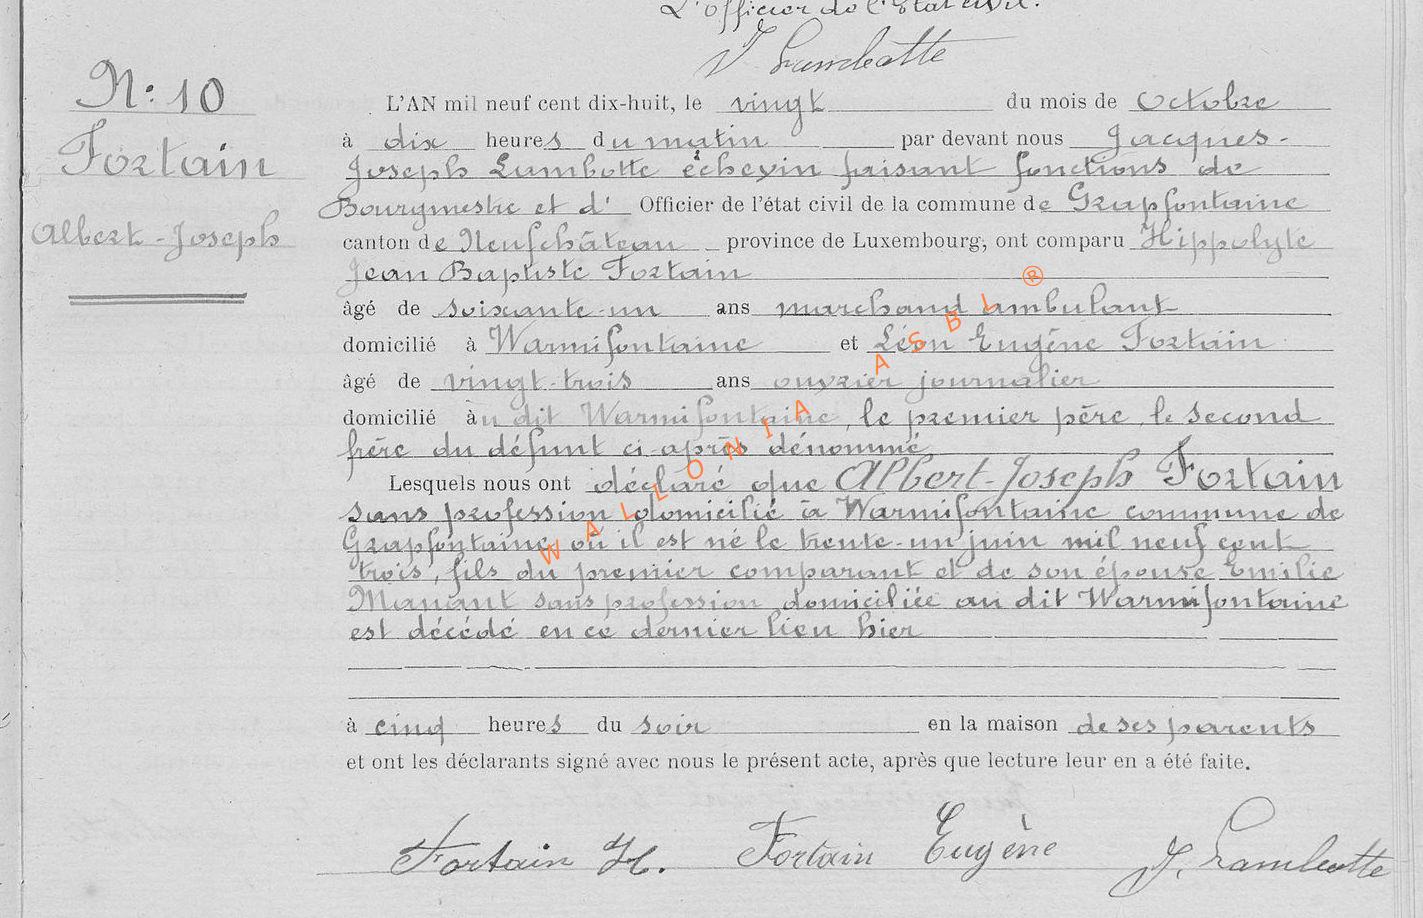 L'officier de l'Etat civil.
J. Lambotte
N: 10
Fortain
Albert-Joseph
L'AN mil neuf cent dix-huit, le vingt du mois de Octobre
à dix heures du matin par devant nous Jacques-
Joseph Lambotte échevin faisant fonctions de
Bourgmestre et d' Officier de l'état civil de la commune de Grapfontaine
canton de Neufchâteau province de Luxembourg, ont comparu Hippolyte
Jean Baptiste Fortain
âgé de soixante-un ans marchand ambulant
domicilié à Warmifontaine et Léon Eugène Fortain
âgé de vingt-trois ans ouvrier journalier
domicilié au dit Warmifontaine, le premier père, le second
frère du défunt ci-après dénommé
Lesquels nous ont déclaré que Albert-Joseph Fortain
sans profession domicilié à Warmifontaine commune de
Grapfontaine où il est né le trente-un juin mil neuf cent
trois, fils du premier comparant et de son épouse Emilie
Manant sans profession domiciliée au dit Warmifontaine
est décédé en ce dernier lieu hier
à cinq heures du soir en la maison de ses parents
et ont les déclarants signé avec nous le présent acte, après que lecture leur en a été faite.
Fortain H. Fortain Eugène J. Lambotte
WALLONIA ASBL ®